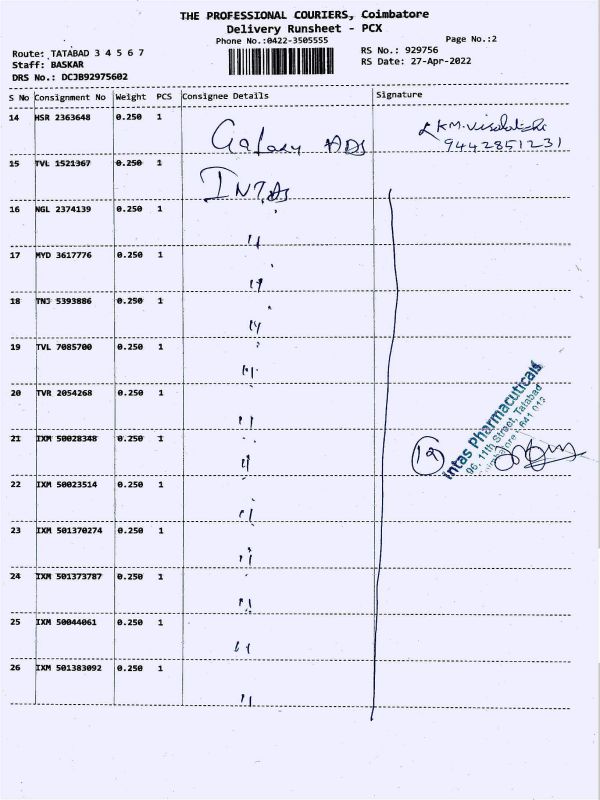 THE PROFESSIONAL COURIERS, Coimbatore
Delivery Runsheet - PCX
Phone No.:0422-3505555
Page No.:2
Route: TATABAD 3 4 5 6 7
RS No.: 929756
Staff: BASKAR
RS Date: 27-Apr-2022
DRS No.: DCJB92975602
S No Consignment No Weight PCS Consignee Details Signature
14 HSR 2363648 0.250 1 Galaxy ADS
9442851231
15 TVL 1521367 0.250 1 INTAS
16 NGL 2374139 0.250 1 "
17 MYD 3617776 0.250 1 "
18 TNJ 5393886 0.250 1 "
19 TVL 7085700 0.250 1 "
20 TVR 2054268 0.250 1 "
21 IXM 50028348 0.250 1 " 12
Intas Pharmacuticals
96, 11th Street, Tatabad
Coimbatore - 641 012
22 IXM 50023514 0.250 1 "
23 IXM 501370274 0.250 1 "
24 IXM 501373787 0.250 1 "
25 IXM 50044061 0.250 1 "
26 IXM 501383092 0.250 1 "